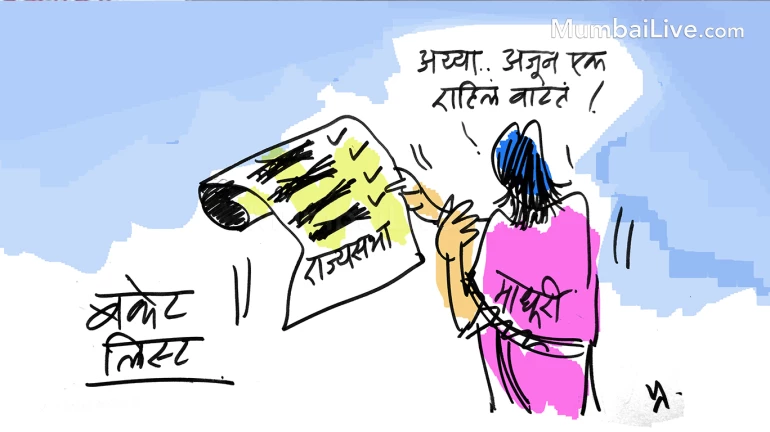 MumbaiLive.com
अय्या.. अजून एक
राहिलं वाटतं !
राज्यसभा
माधूरी
बकेट
लिस्ट